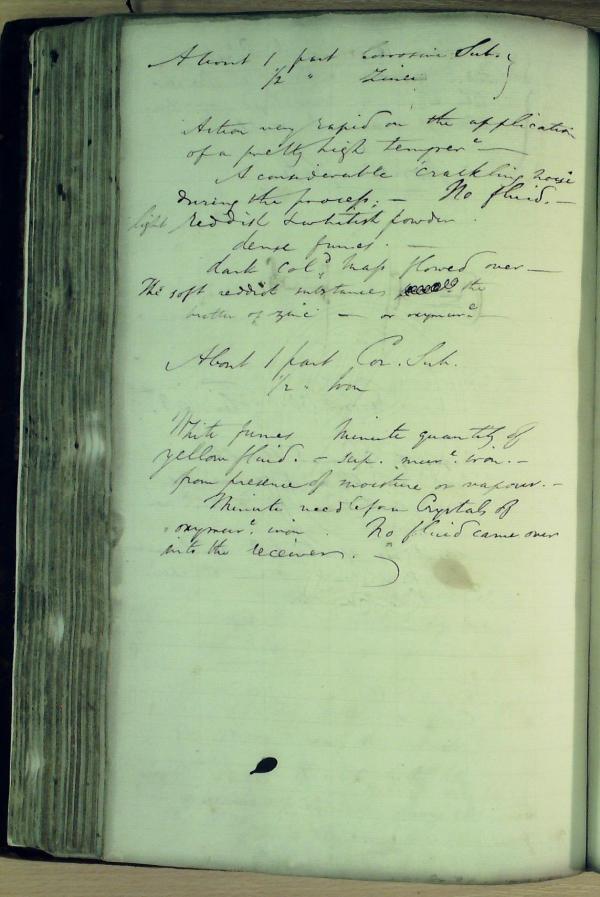 About 1 part Corrosive Sub.
1/2 " Zinc
Action very rapid on the application
of a pretty high temper.e —
A considerable crackling noise
during the process; — No fluid. —
light reddish & whitish powder.
dense fumes. —
dark Col.d Mass flowed over —
The soft reddish substances the
butter of zinc — or oxymur.e
About 1 part Cor. Sub.
1/2 " Iron
White fumes Minute quantity of
yellow fluid. = sup. mur.e iron. —
from presence of moisture or vapour. —
Minute needleform Crystals of
oxymur.e iron. No fluid came over
into the receiver.